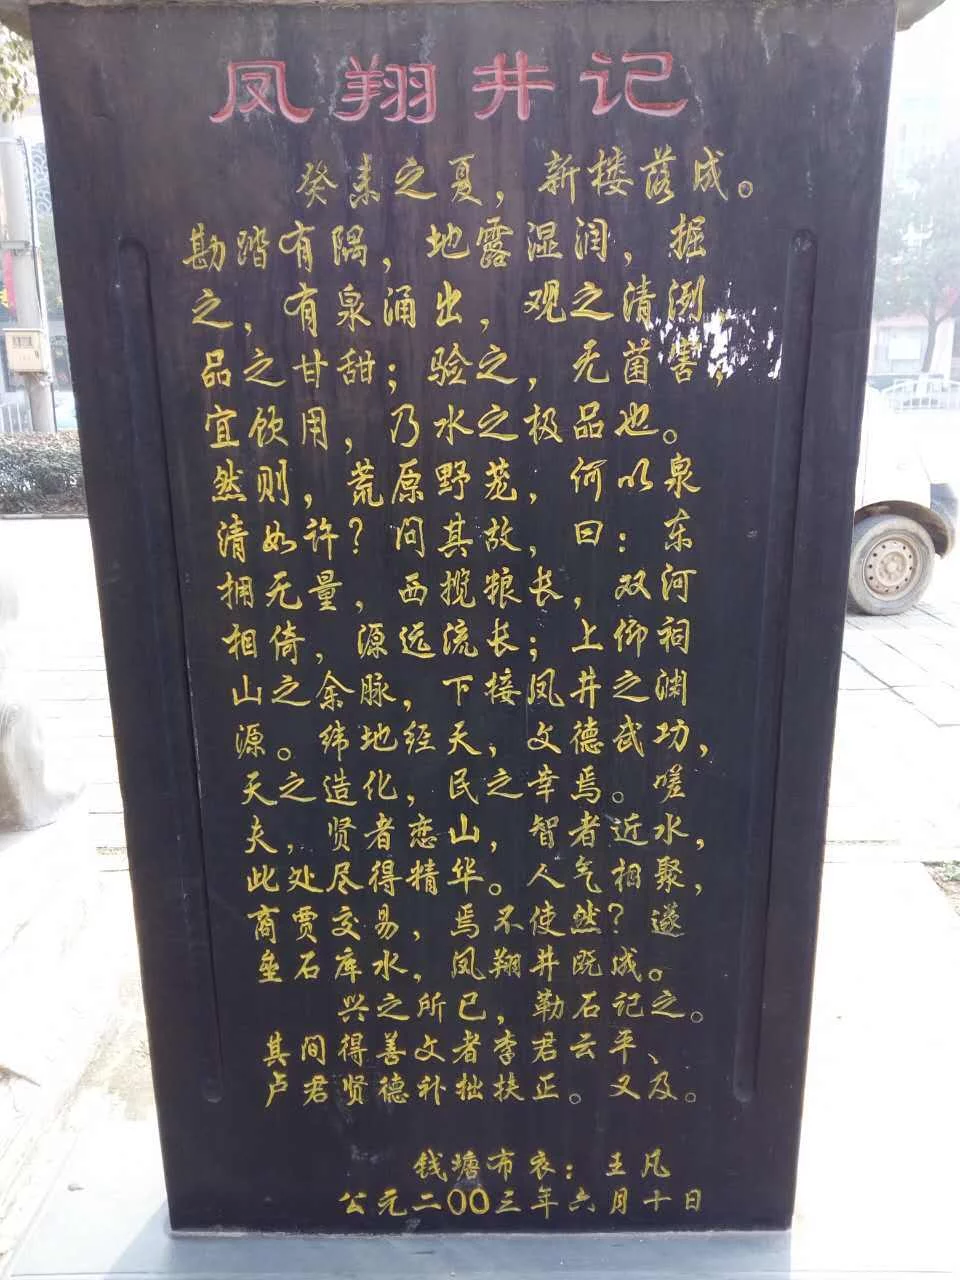 凤翔井记
癸未之夏，新楼落成。
勘踏有隅，地露湿润，掘
之，有泉涌出，观之清洌，
品之甘甜；验之，无菌害；
宜饮用，乃水之极品也。
然则，荒原野茏，何以泉
清如许？问其故，曰：东
拥无量，西揽粮长，双河
相倚，源远流长；上仰祠
山之余脉，下接凤井之渊
源。纬地经天，文德武功，
天之造化，民之幸焉。嗟
夫，贤者恋山，智者近水，
此处尽得精华。人气相聚，
商贾交易，焉不使然？遂
垒石库水，凤翔井既成。
兴之所已，勒石记之。
其间得善文者李君云平、
卢君贤德补拙扶正。又及。
钱塘布衣：王凡
公元二〇〇三年六月十日